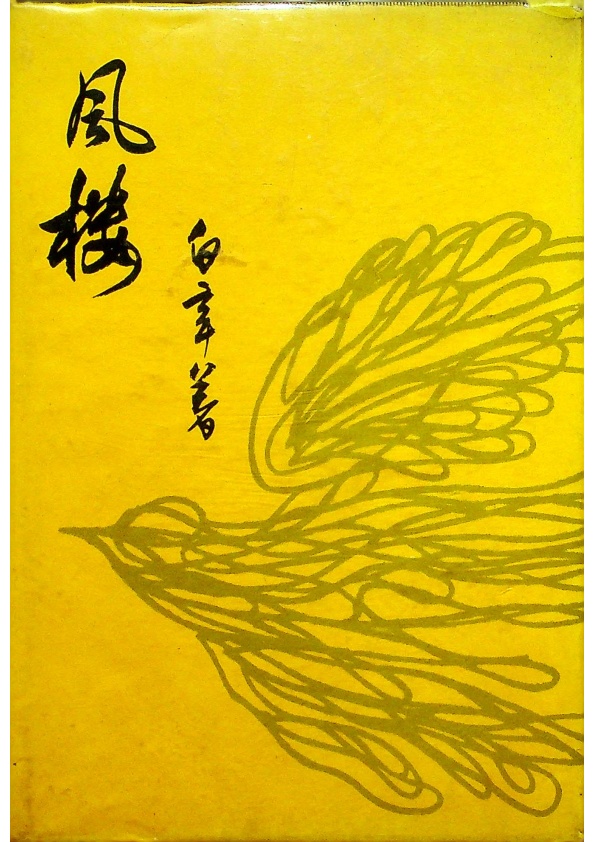 風樓
白辛著